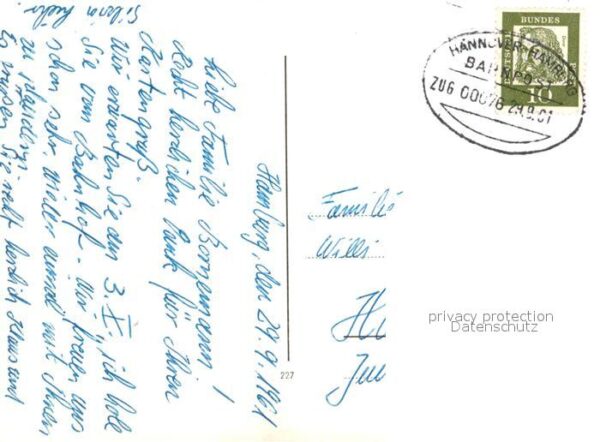 Hamburg, den 29.9.1961
Liebe Familie Bornemann!
Recht herzlichen Dank für Ihren
Kartengruß.
Wir erwarten Sie den 3.X., ich hole
Sie vom Bahnhof. Wir freuen uns
schon sehr, wieder einmal mit Ihnen
zu plaudern.
Es grüßen Sie recht herzlich
Familie
Willi
227
BUNDES
DEUTSCHE
10
HANNOVER-HAMBURG
BAHNPOST
ZUG 00076 29.9.61
privacy protection
Datenschutz